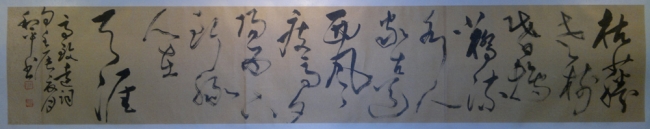 枯藤
老树
昏鸦小
桥流
水人
家古道
西风
瘦马夕
阳西下
断肠
人在
天涯
马致远词